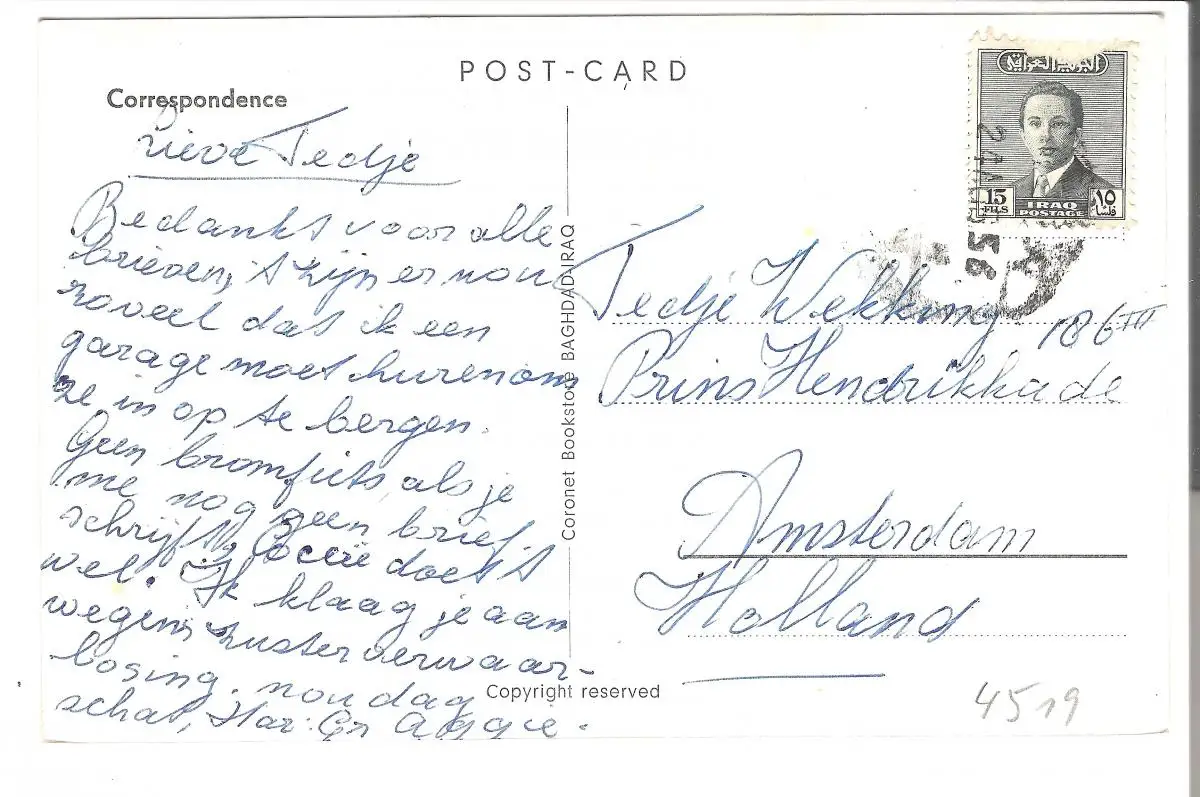 POST-CARD
Correspondence
Lieve Tedje
Bedankt voor alle
brieven, 't zijn er nou
zoveel dat ik een
garage moet huren om
ze in op te bergen.
Geen bromfiets, als je
me nog geen brief
schrijft, doet 't
wel. Ik klaag je aan
wegens zusterverwaar-
losing. nou dag
schat, Har: Gr Aggie.
Coronet Bookstore BAGHDAD-IRAQ
Copyright reserved
15
FILS
IRAQ
POSTAGE
١٥
فلسا
Tedje Wekking 186 III
Prins Hendrikkade
Amsterdam
Holland
4519